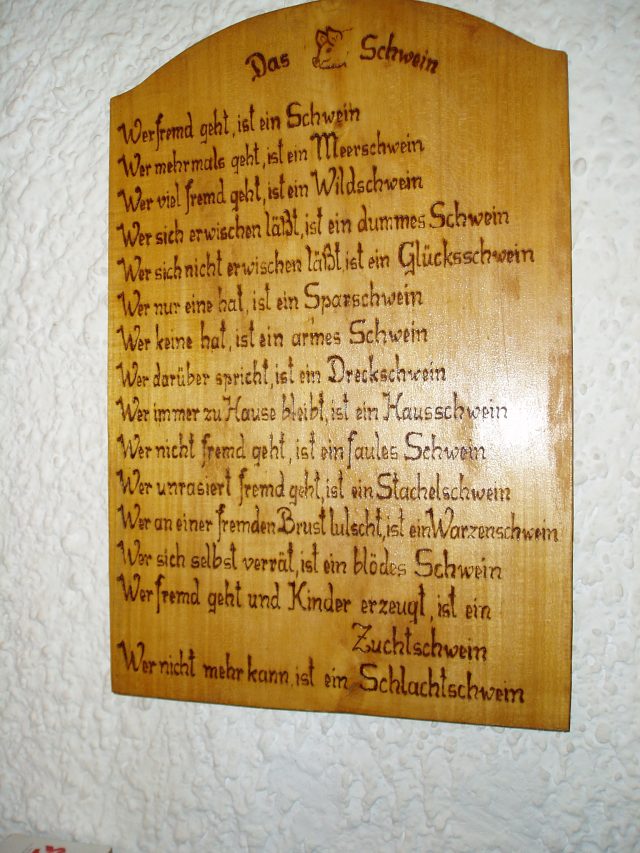 Das Schwein
Wer fremd geht, ist ein Schwein
Wer mehrmals geht, ist ein Meerschwein
Wer viel fremd geht, ist ein Wildschwein
Wer sich erwischen läßt, ist ein dummes Schwein
Wer sich nicht erwischen läßt ist ein Glücksschwein
Wer nur eine hat, ist ein Sparschwein
Wer keine hat, ist ein armes Schwein
Wer darüber spricht, ist ein Dreckschwein
Wer immer zu Hause bleibt, ist ein Hausschwein
Wer nicht fremd geht, ist ein faules Schwein
Wer unrasiert fremd geht, ist ein Stachelschwein
Wer an einer fremden Brust lulscht, ist ein Warzenschwein
Wer sich selbst verrät, ist ein blödes Schwein
Wer fremd geht und Kinder erzeugt, ist ein
Zuchtschwein
Wer nicht mehr kann, ist ein Schlachtschwein